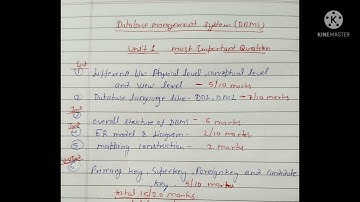 Database management System (DBMS)
Unit 1 most Important Question
KINEMASTER
① difference b/w Physical level, conceptual level
and view level - 5/10 marks
② Database language like- DDL, DML - 7/10 marks
③ overall structure of DBMS - 5 marks
④ ER model & diagram - 2/10 marks
⑤ mapping construction - 2 marks
⑥ Primary key, Superkey, Foreign key and candidate
key 5/10 marks
total 15/20 marks